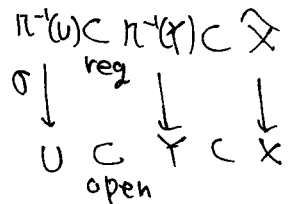 π⁻¹(U) ⊂ π⁻¹(Y) ⊂ X̃
reg
σ ↓ ↓ ↓
U ⊂ Y ⊂ X
open